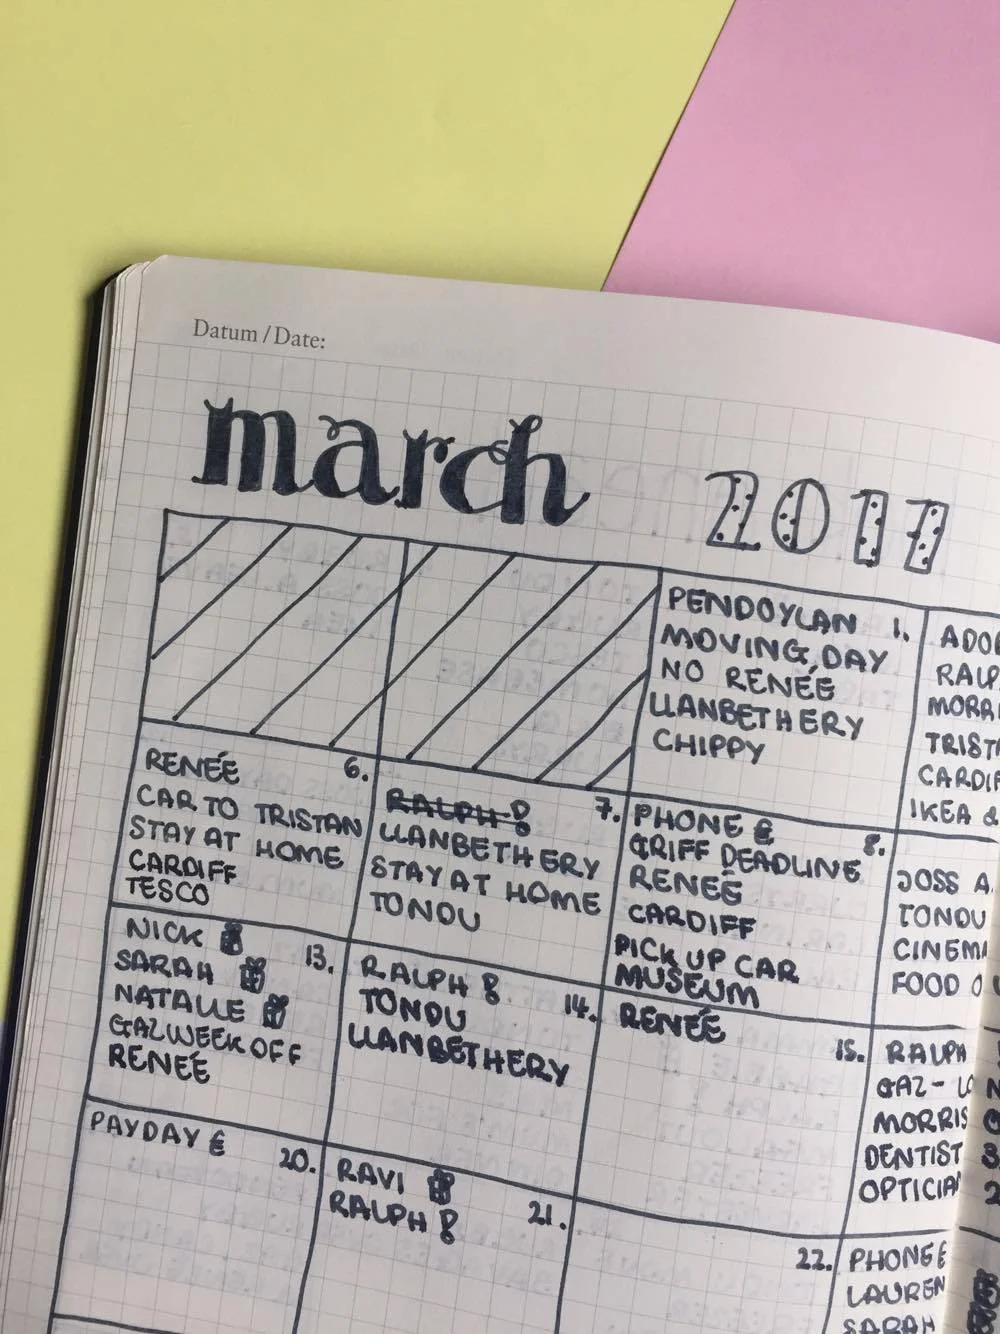 Datum / Date:
march 2017
PENDOYLAN 1.
MOVING DAY
NO RENÉE
LLANBETHERY
CHIPPY
RALP
MORR
TRIST
CARDIF
IKEA &
RENÉE 6.
CAR TO TRISTAN
STAY AT HOME
CARDIFF
TESCO
RALPH 7.
LLANBETHERY
STAY AT HOME
TONDU
PHONE £
GRIFF DEADLINE 8.
RENÉE
CARDIFF
PICK UP CAR
MUSEUM
JOSS A.
TONDU
CINEM
FOOD
NICK
SARAH 13.
NATALIE
GAZ WEEK OFF
RENÉE
RALPH
TONDU 14.
LLANBETHERY
RENÉE
15.
RALPH
GAZ -
MORRIS
DENTIST
OPTICIA
PAYDAY £
20.
RAVI
RALPH 21.
22.
PHONE £
LAUREN
SARAH